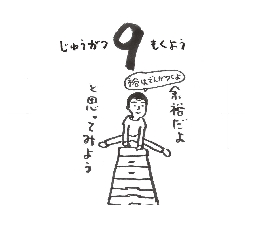 じゅうがつ 9 もくよう
裕はてんがつくよ
余裕だよ
と思ってみよう